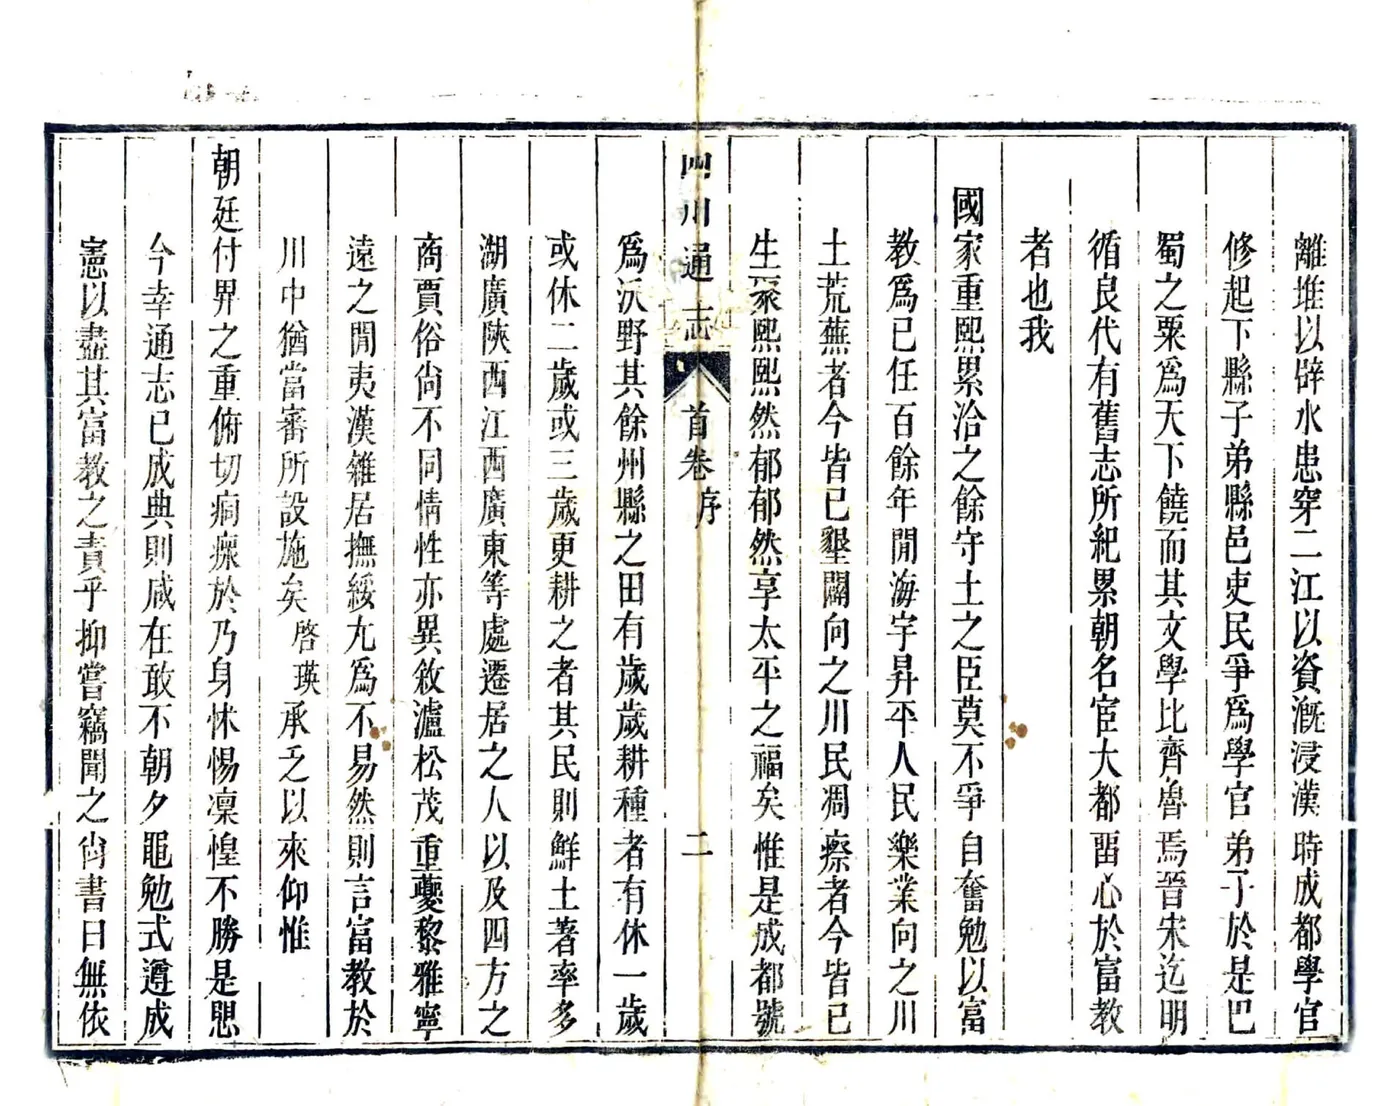 離堆以辟水患穿二江以資漑浸漢時成都學官
修起下縣子弟縣邑吏民爭爲學官弟子於是巴
蜀之粟爲天下饒而其文學比齊魯焉晉宋迄明
循良代有舊志所紀累朝名宦大都畱心於富教
者也我
國家重熙累洽之餘守土之臣莫不爭自奮勉以富
教爲已任百餘年閒海宇昇平人民樂業向之川
土荒蕪者今皆已墾闢向之川民凋瘵者今皆已
生聚熙熙然郁郁然享太平之福矣惟是成都號
四川通志 首卷 序 二
爲沃野其餘州縣之田有歲歲耕種者有休一歲
或休二歲或三歲更耕之者其民則鮮土著率多
湖廣陝西江西廣東等處遷居之人以及四方之
商賈俗尙不同情性亦異敘瀘松茂重夔黎雅寧
遠之閒夷漢雜居撫綏尢爲不易然則言富教於
川中猶當審所設施矣啓瑛承乏以來仰惟
朝廷付畀之重俯切痌瘝於乃身怵惕凜惶不勝是思
今幸通志已成典則咸在敢不朝夕黽勉式遵成
憲以盡其富教之責乎抑嘗竊聞之尙書曰無依